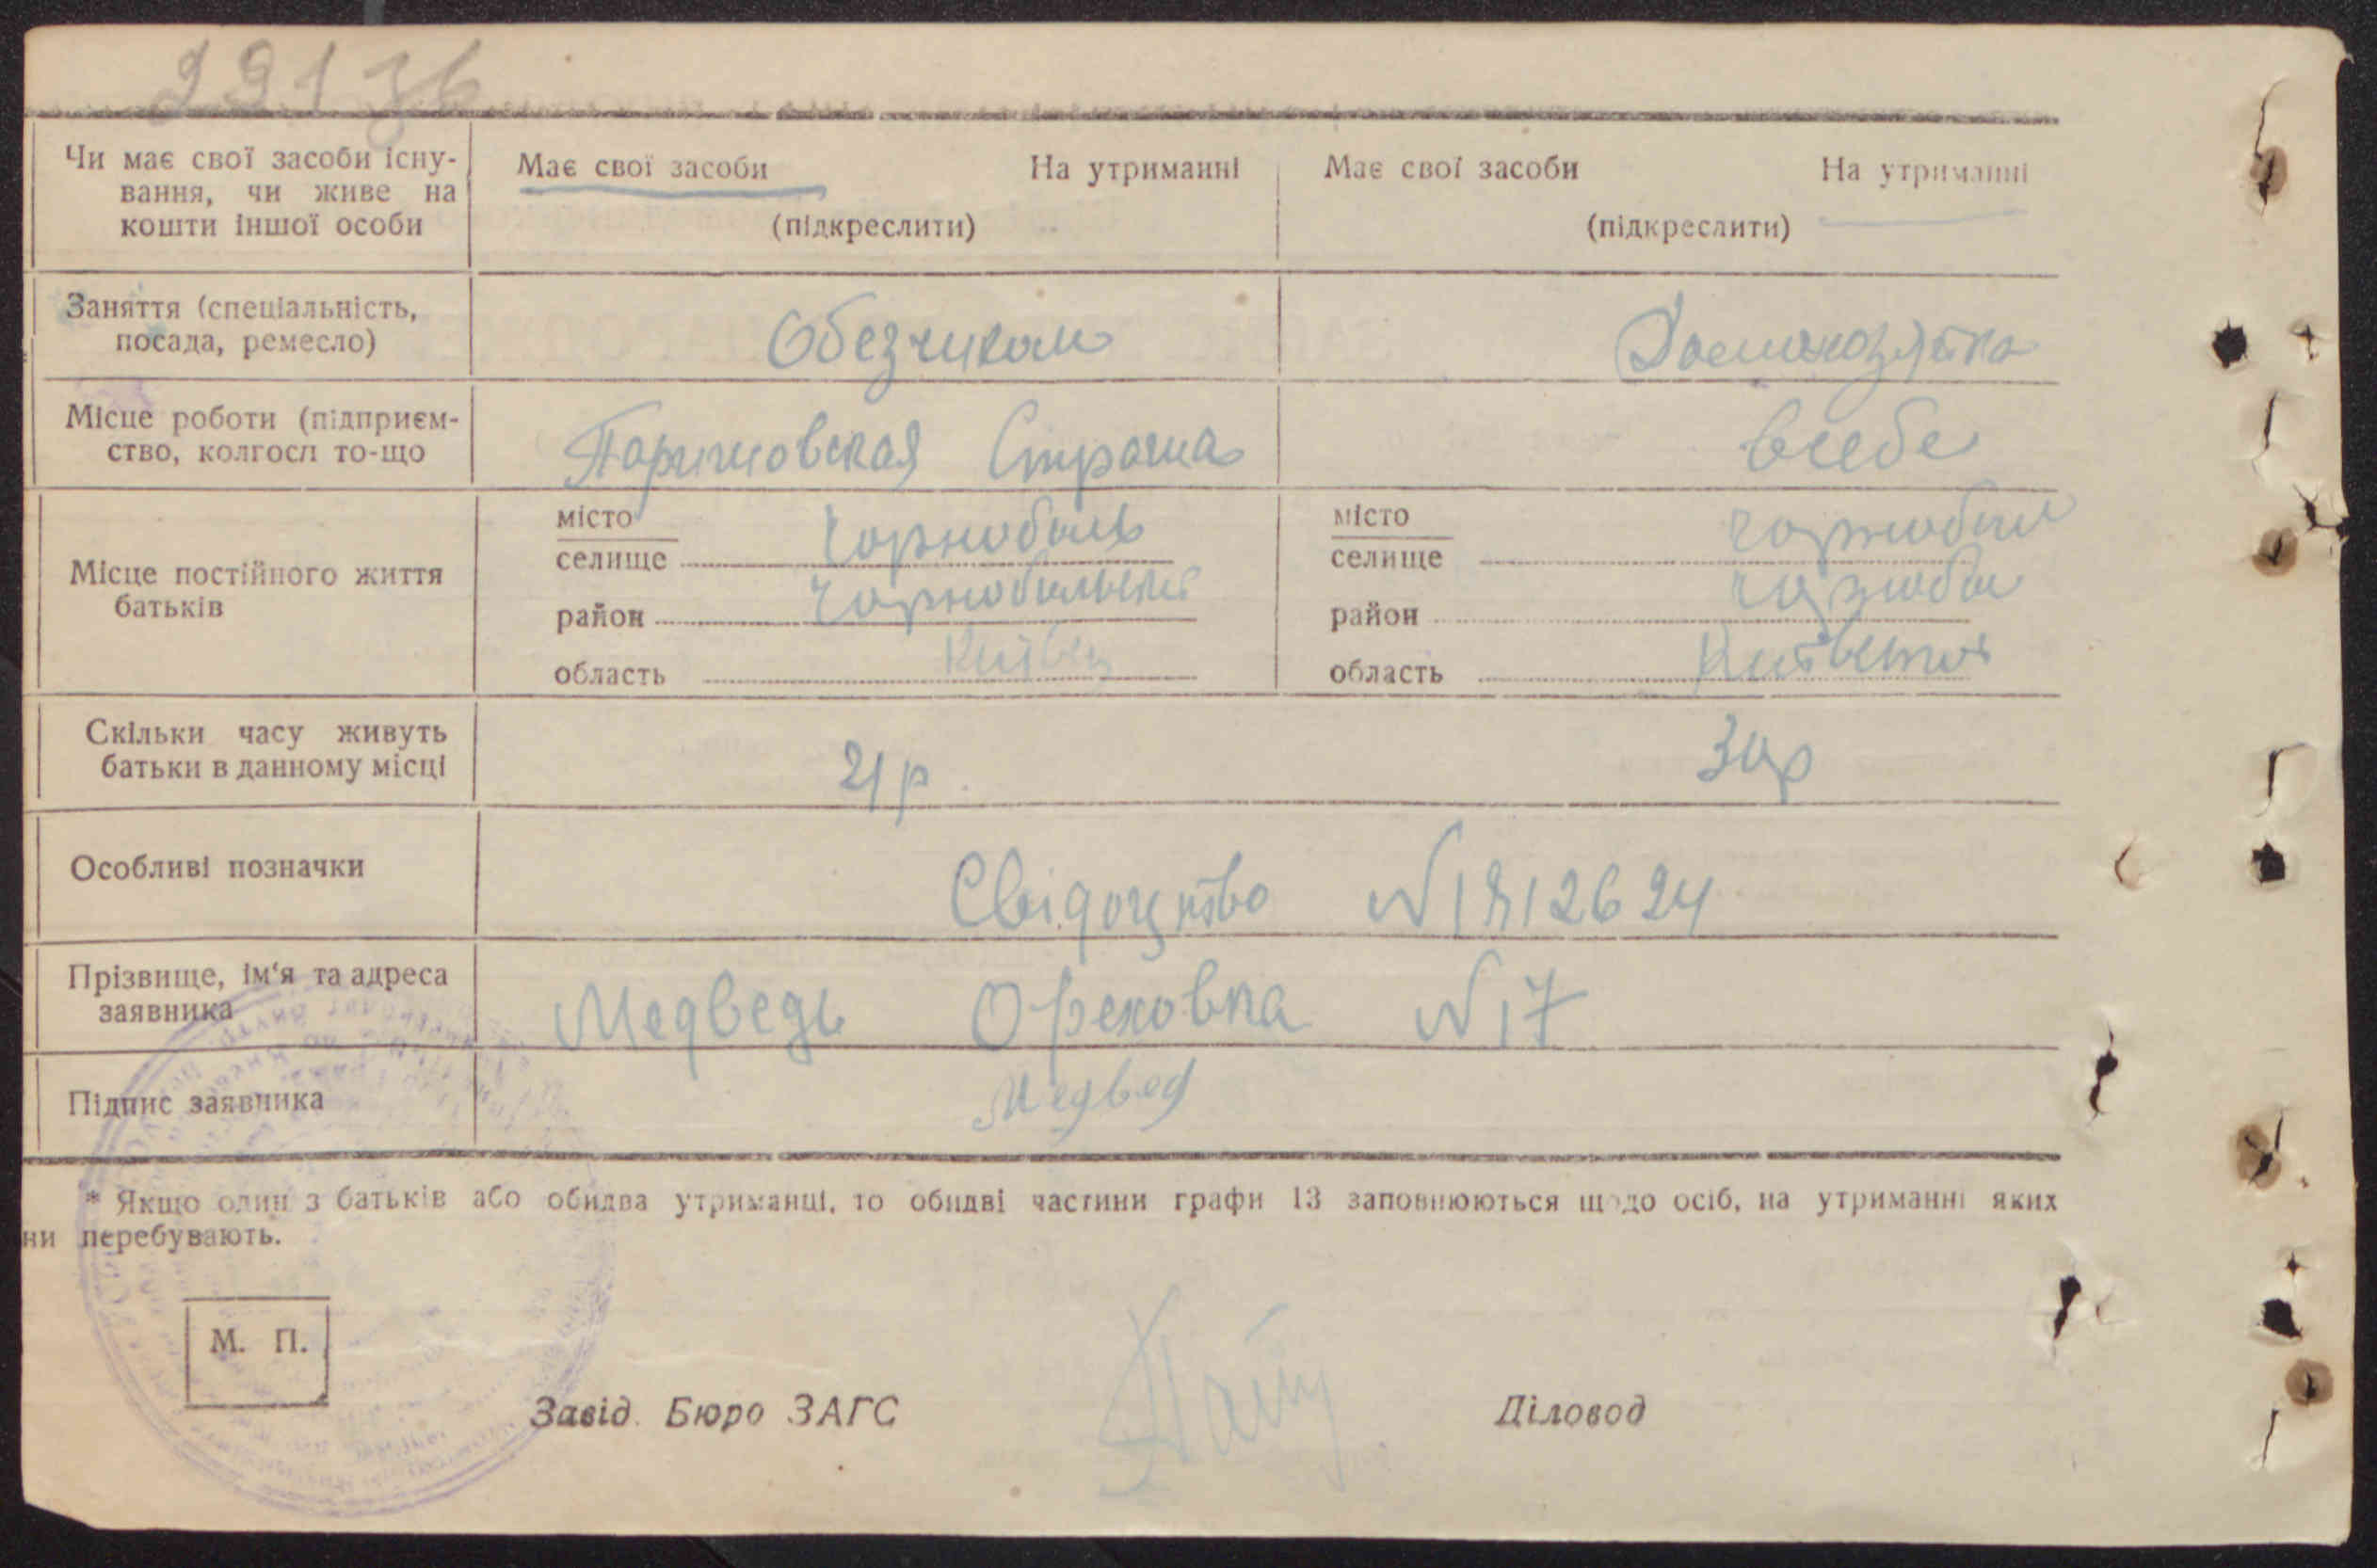 29136
Чи має свої засоби існу-
вання, чи живе на
кошти іншої особи
Має свої засоби На утриманні
(підкреслити)
Має свої засоби На утриманні
(підкреслити)
Заняття (спеціальність,
посада, ремесло)
Обезчиком
Домохозяйка
Місце роботи (підприєм-
ство, колгосп то-що
Страша
всебе
Місце постійного життя
батьків
місто
селище Чорнобиль
район Чорнобильский
область Київск
місто
селище Чорнобил
район Чорноби
область
Скільки часу живуть
батьки в данному місці
21р
30р
Особливі позначки
Свідоцтво N1812624
Прізвище, ім'я та адреса
заявника
Медведь Ореховка N17
Підпис заявника
Медвед
* Якщо один з батьків або обидва утриманці, то обидві частини графи 13 заповнюються щодо осіб, на утриманні яких
ни перебувають.
М. П.
Завід. Бюро ЗАГС
Діловод